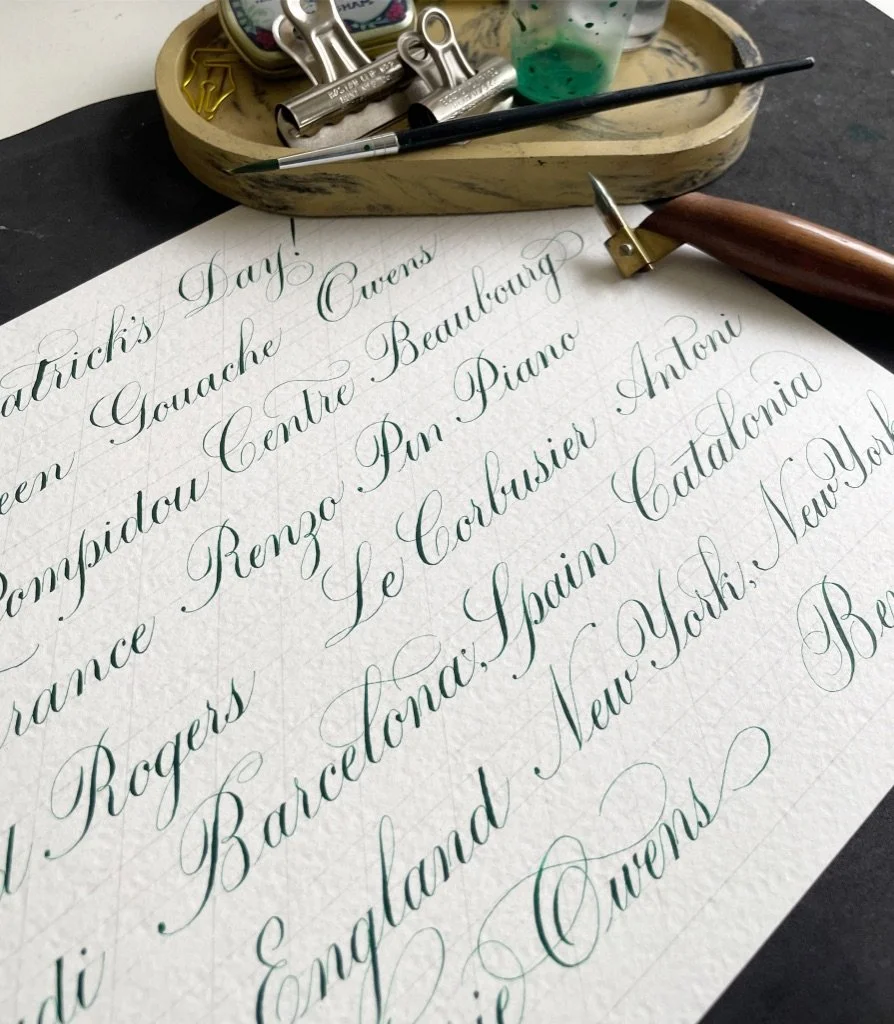 atrick's Day!
een Gouache Owens
Pompidou Centre Beaubourg
rance Renzo Pin Piano
d Rogers Le Corbusier Antoni
udi Barcelona, Spain Catalonia
England New York, New York
ie Owens Be